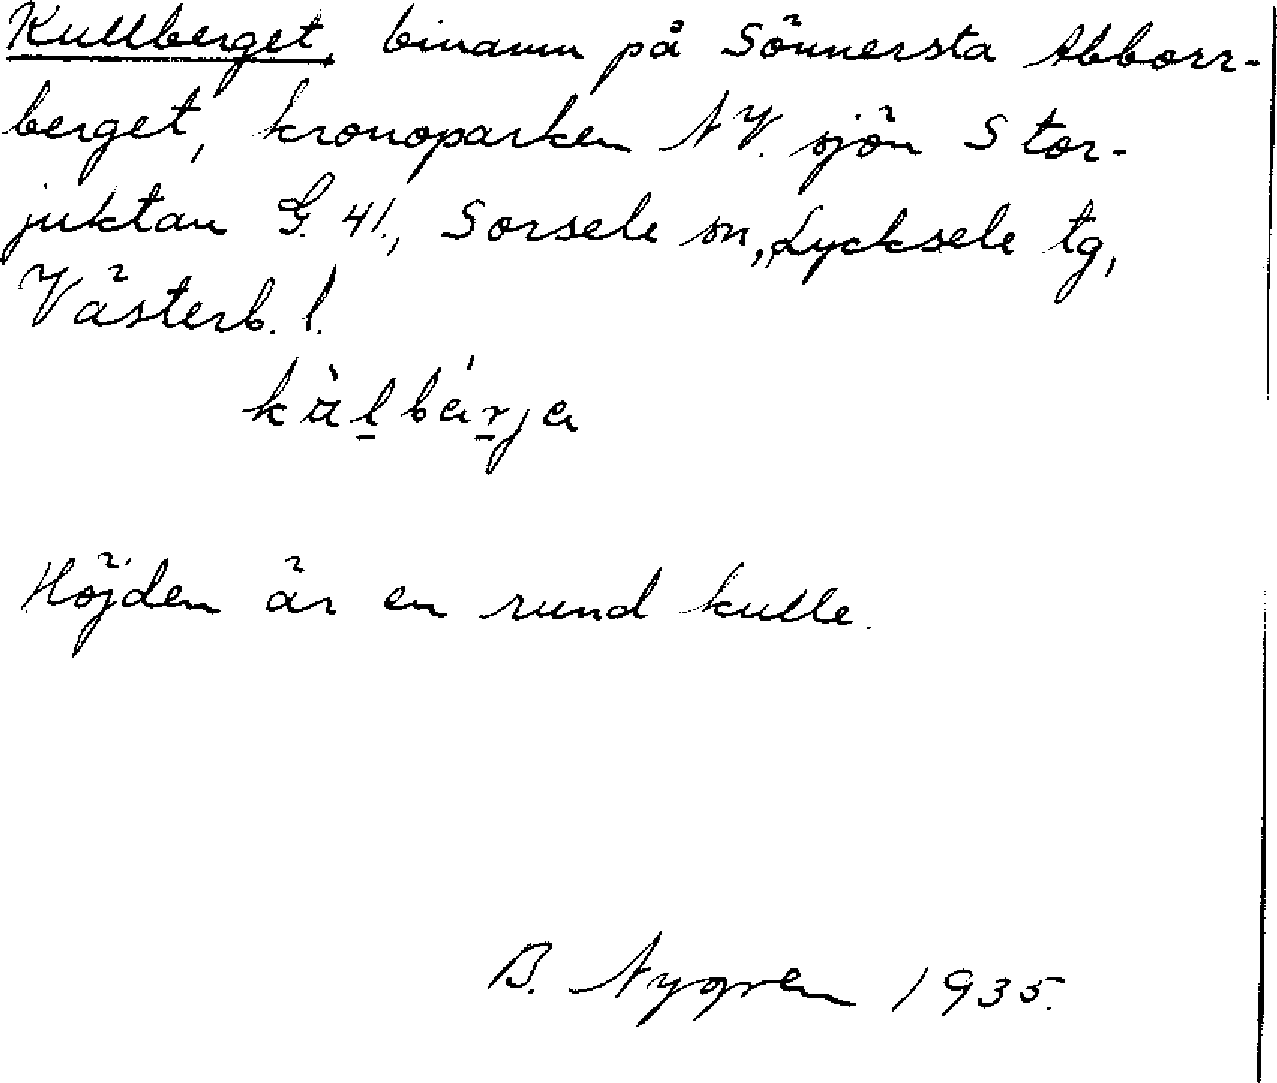 Kullberget, binamn på Sönnersta Abborr-
berget, kronoparken NV. sjön Stor-
juktan G. 41., Sorsele sn, Lycksele tg,
Västerb. l.
Höjden är en rund kulle.
B. Nygren 1935.